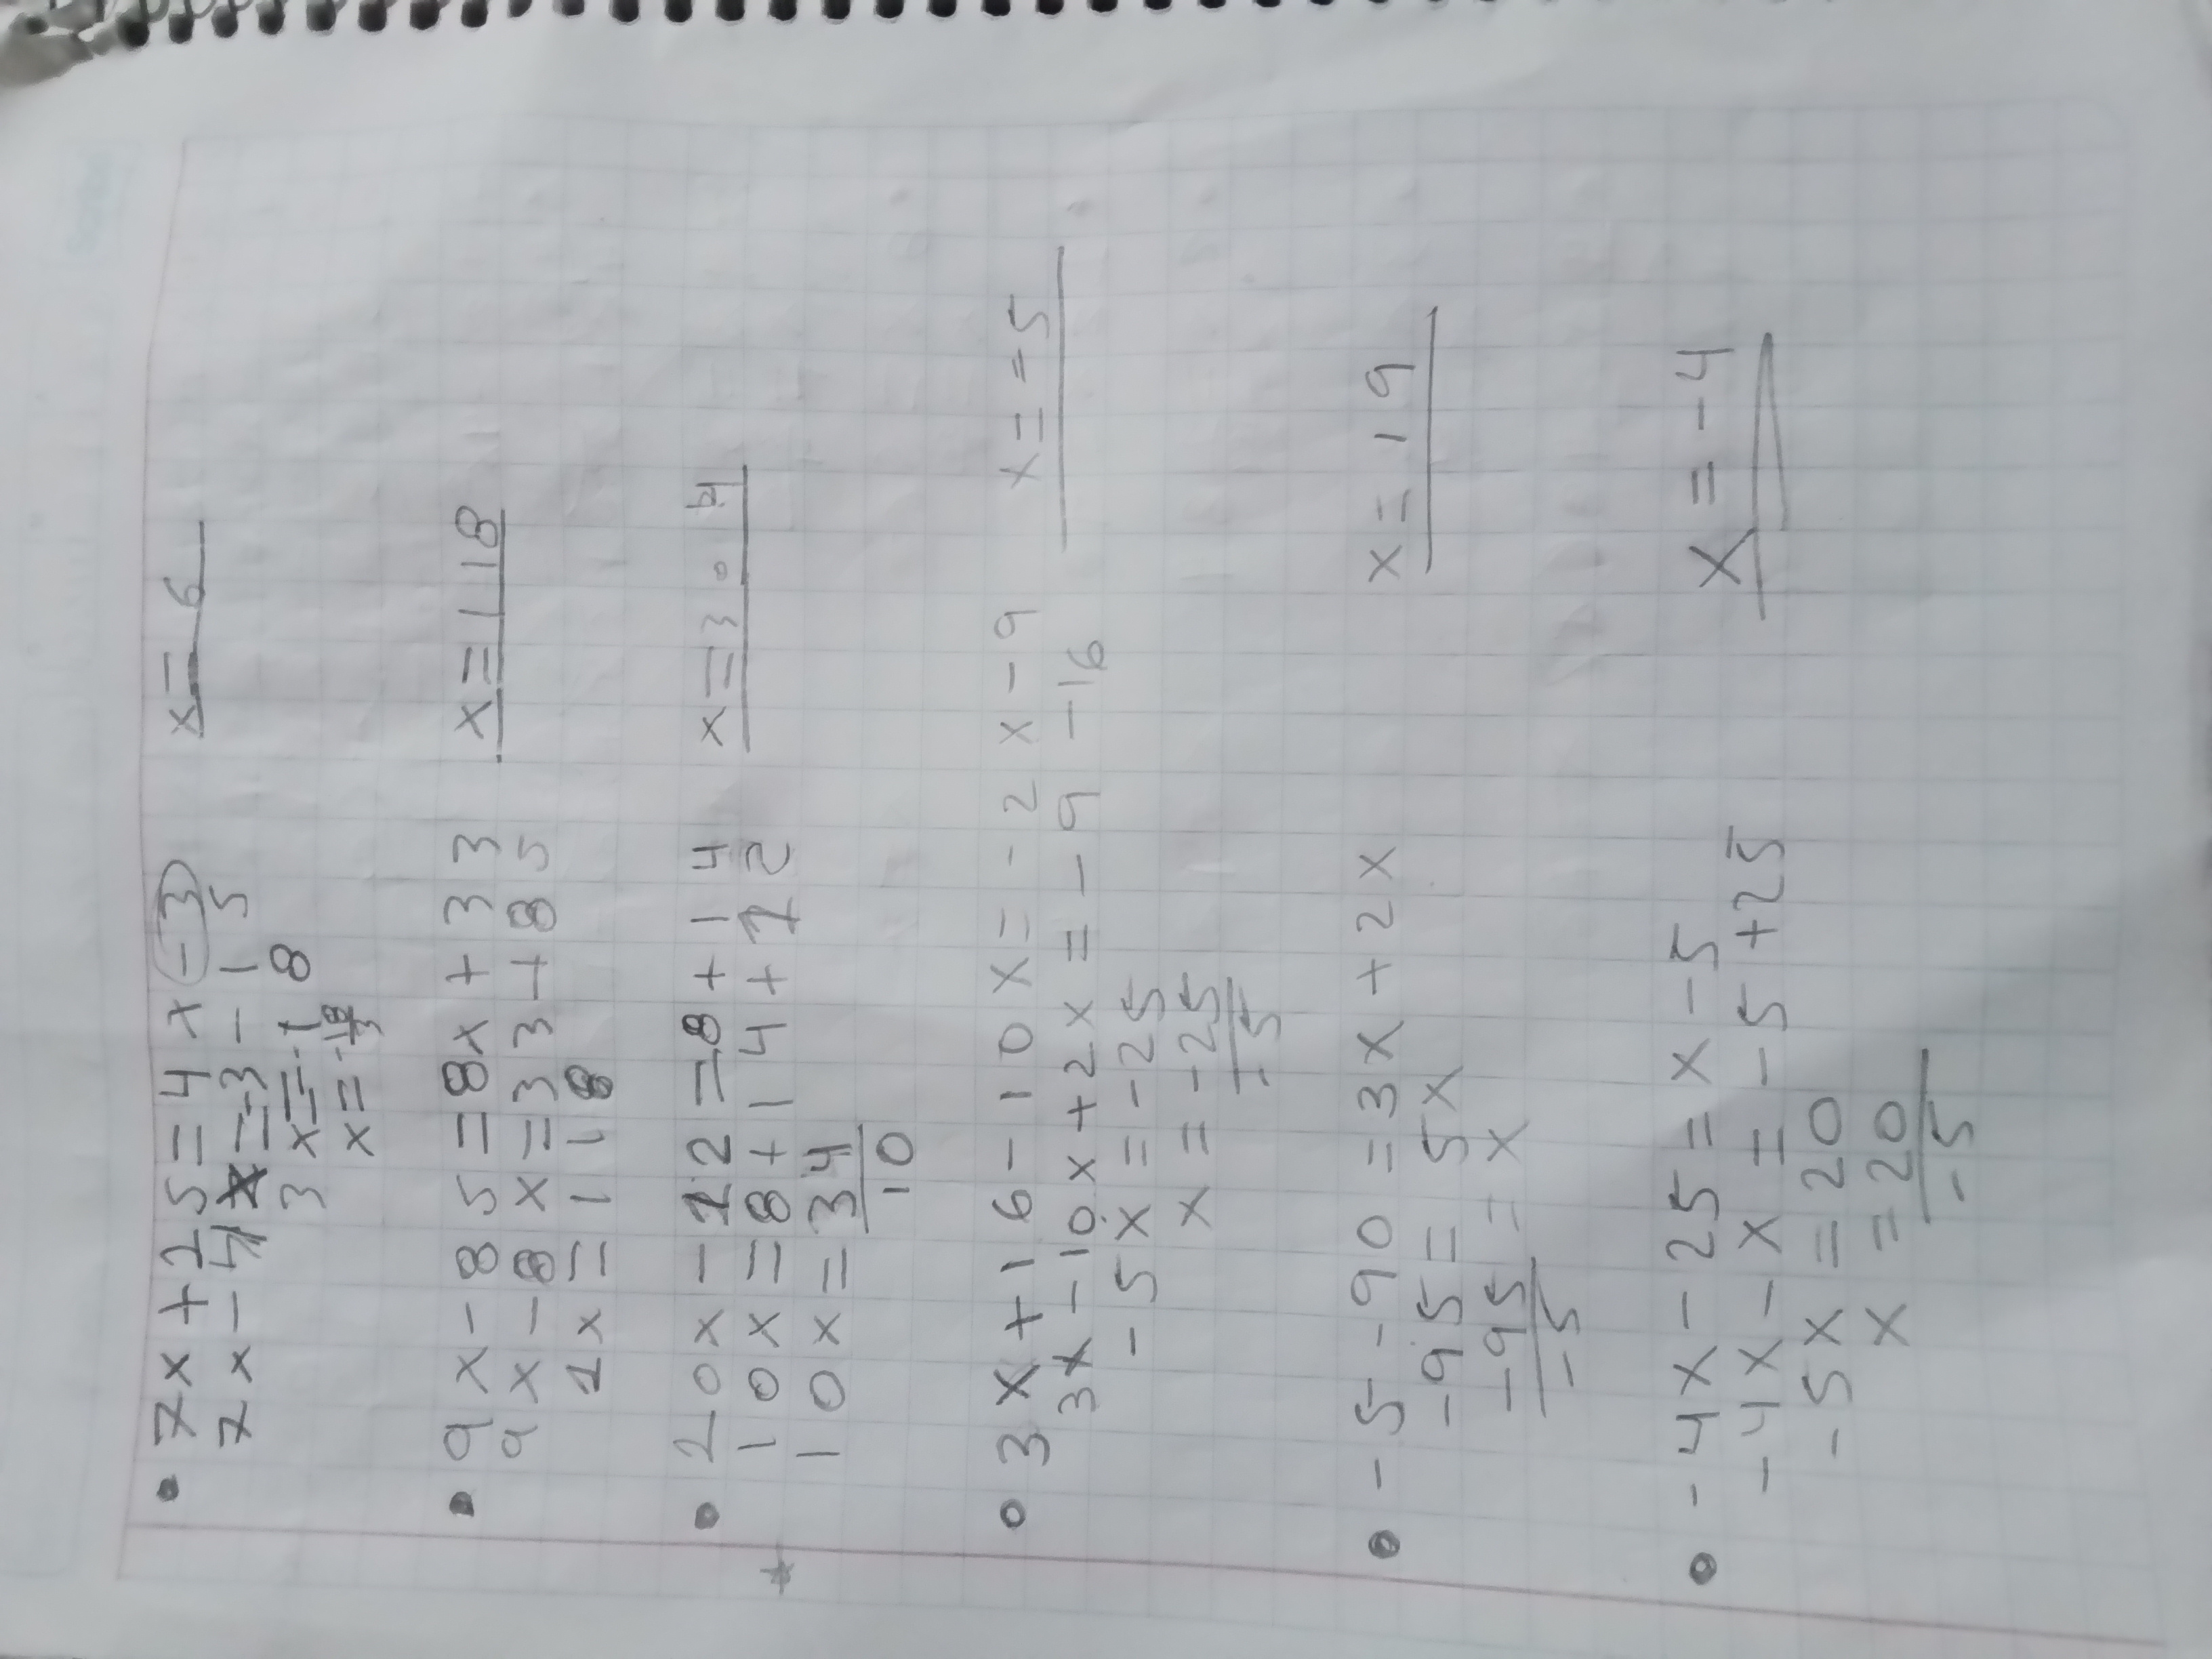 • 7x+15=4x-3 x=6
7x-4x=-3-15
3x=-18
x=-18/3
• 9x-85=8x+33 x=118
9x-8x=33+85
1x=118
• 10x-12=8+14 x=3.4
10x=8+14+12
10x=34/10
• 3x+16-10x=-2x-9 x==5
3x-10x+2x=-9-16
-5x=-25
x=-25/-5
• -5-90=3x+2x x=19
-95=5x
-95/-5=x
• -4x-25=x-5 x=-4
-4x-x=-5+25
-5x=20
x=20/-5